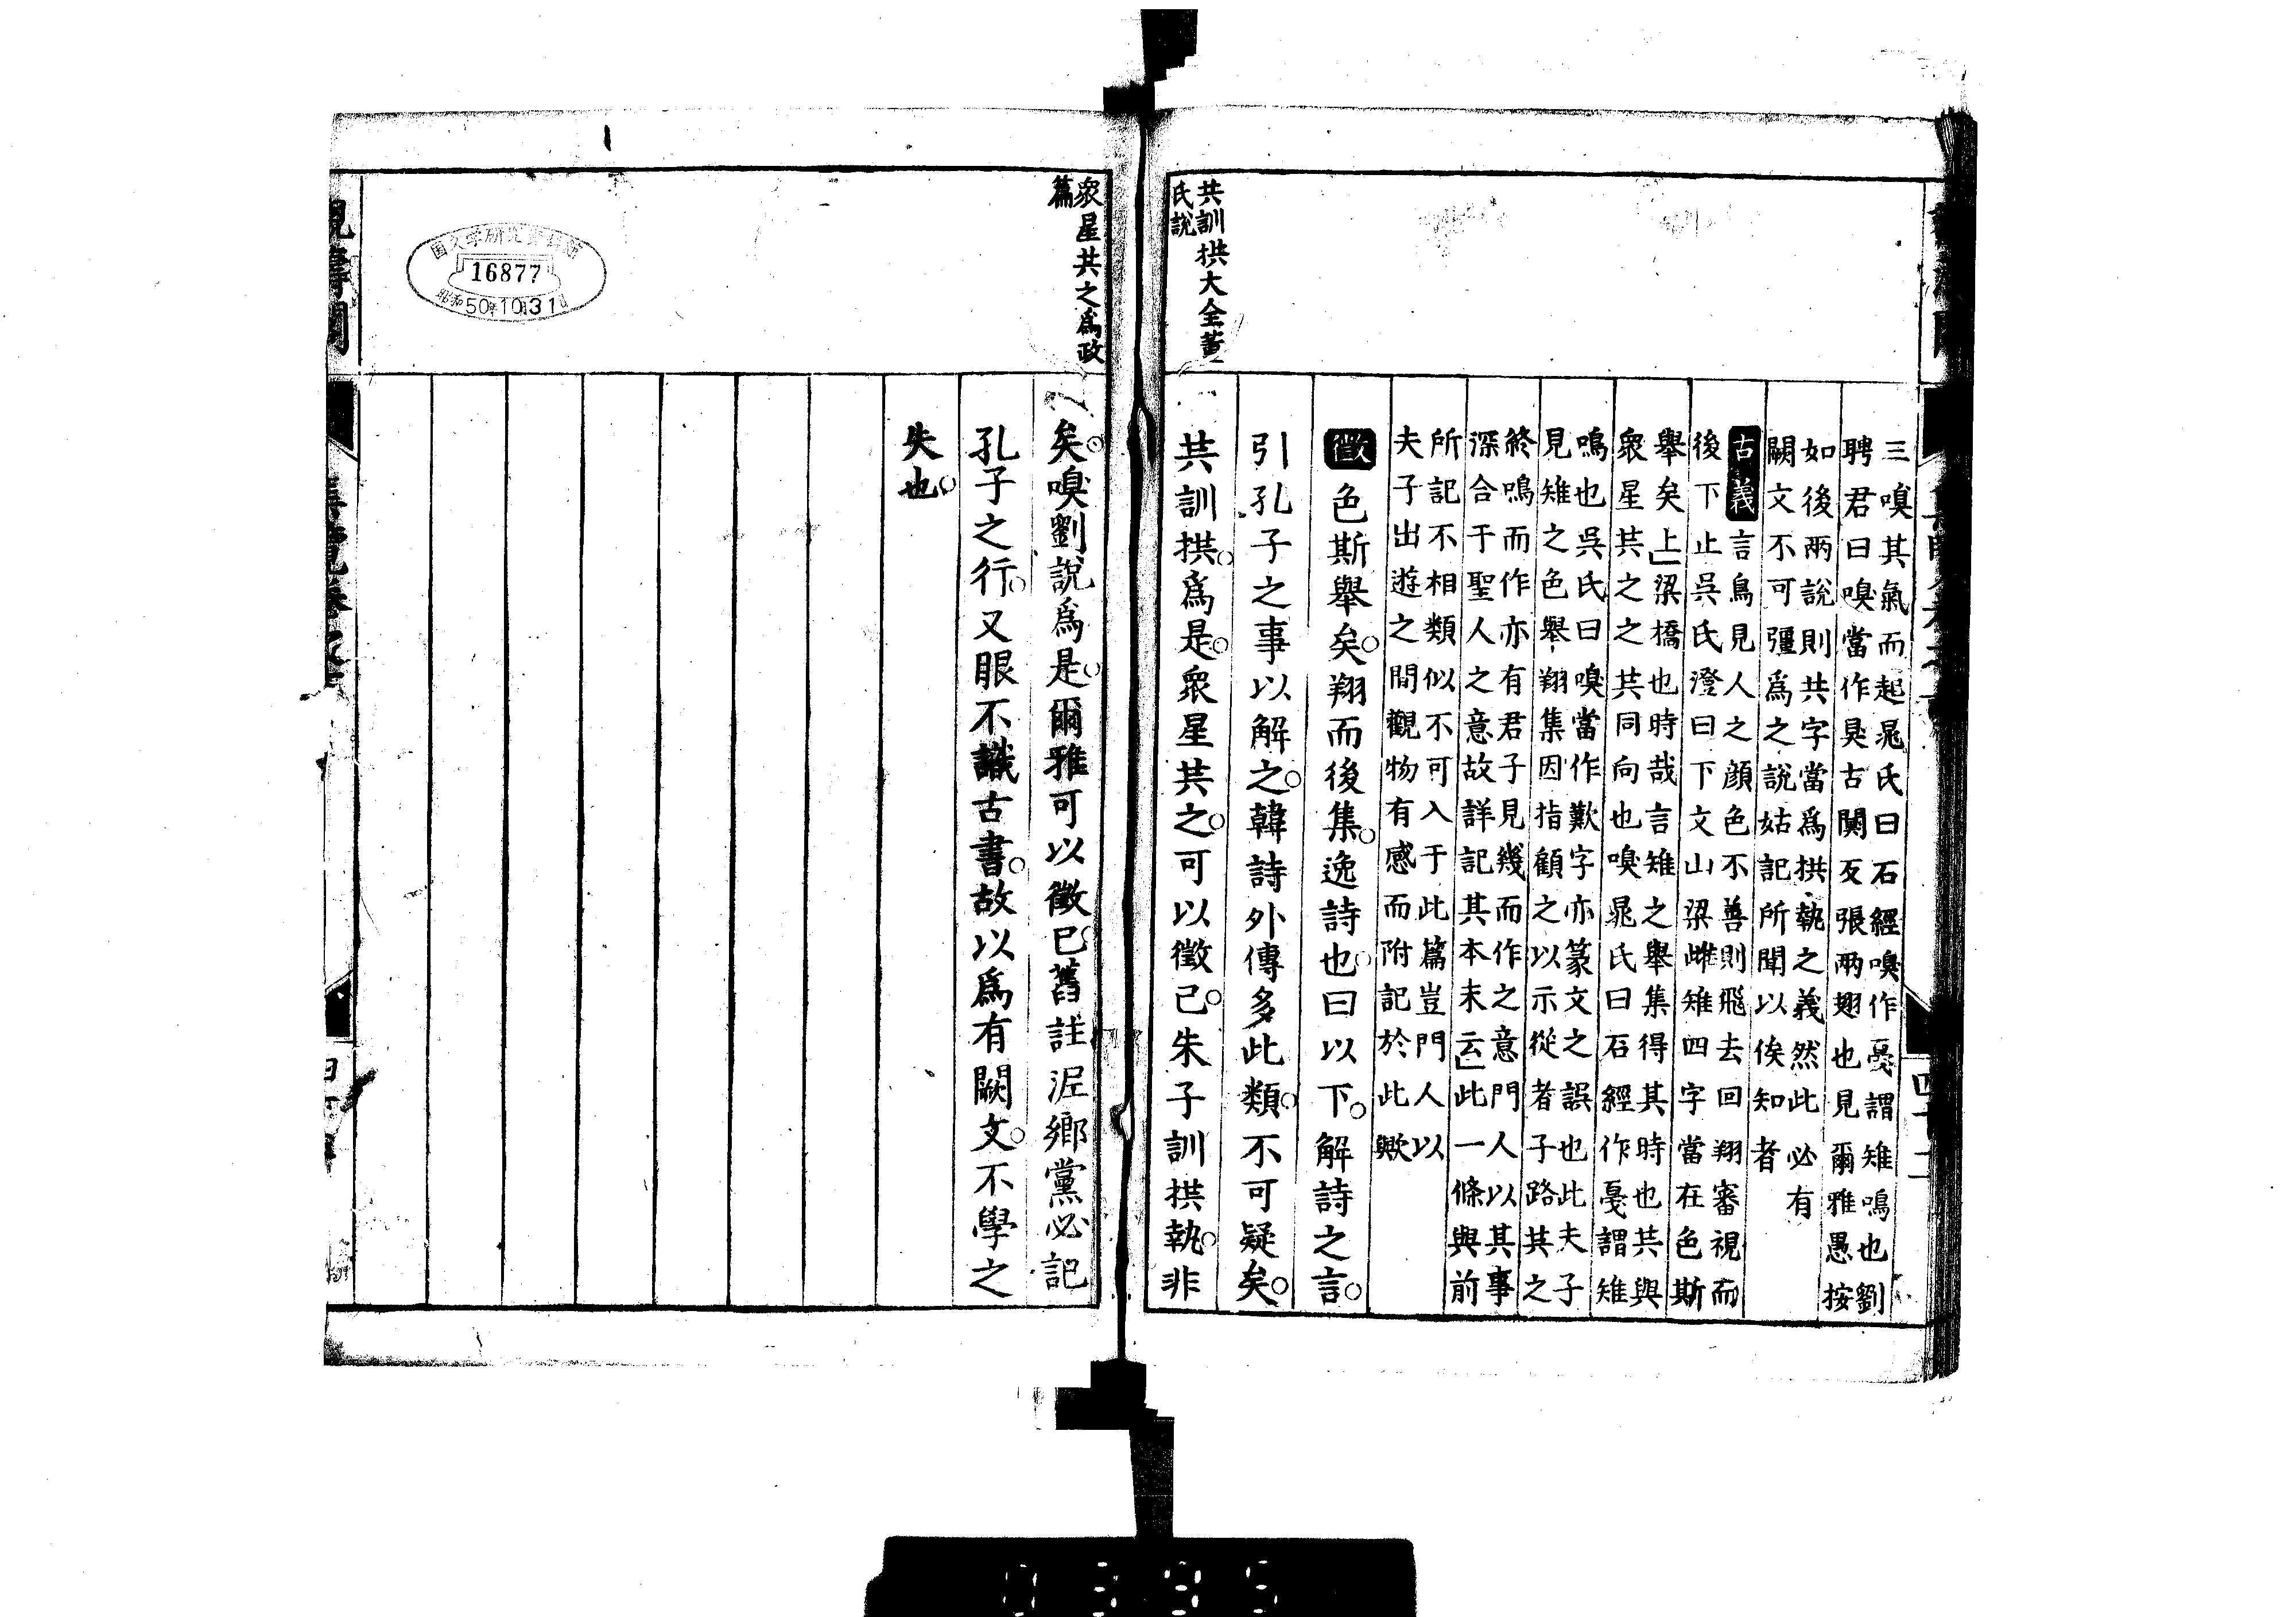 三嗅其氣而起晁氏曰石經嗅作戞謂雉鳴也劉
聘君曰嗅當作狊古闃反張兩翅也見爾雅愚按
如後兩說則共字當爲拱執之義然此必有
闕文不可彊爲之說姑記所聞以俟知者
古義言鳥見人之顔色不善則飛去回翔審視而
後下止吳氏澄曰下文山梁雌雉四字當在色斯
舉矣上梁橋也時哉言雉之舉集得其時也共與
衆星共之之共同向也嗅晁氏曰石經作戞謂雉
鳴也吳氏曰嗅當作歎字亦篆文之誤也此夫子
見雉之色舉翔集因指顧之以示從者子路共之
終鳴而作亦有君子見幾而作之意門人以其事
深合于聖人之意故詳記其本末云此一條與前
所記不相類似不可入于此篇豈門人以
夫子出遊之間觀物有感而附記於此歟
徵色斯舉矣。翔而後集。逸詩也。曰以下。解詩之言。
引孔子之事以解之。韓詩外傳多此類。不可疑矣。
共訓拱大全黃
氏說
共訓拱。爲是。衆星共之。可以徵已。朱子訓拱執。非
衆星共之爲政
篇
矣。嗅劉說爲是。爾雅可以徵已。舊註泥鄉黨必記
孔子之行。又眼不識古書。故以爲有闕文。不學之
失也。
国文学研究資料館
16877
昭和50年10月31日